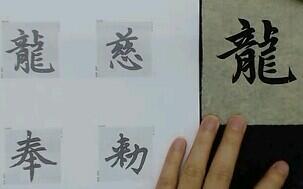 龍 慈
奉 勅
龍